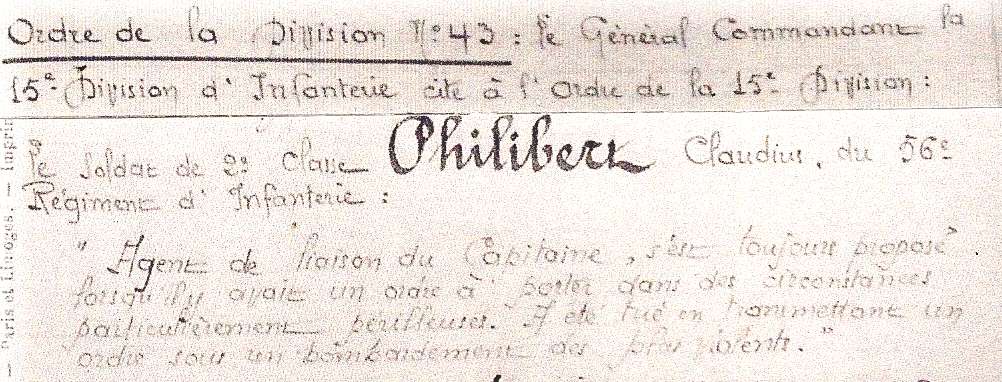 Ordre de la Division N° 43 : le Général Commandant la
15e Division d'Infanterie cite à l'Ordre de la 15e Division :
le Soldat de 2e Classe Philibert Claudius, du 56e
Régiment d'Infanterie :
" Agent de liaison du Capitaine, s'est toujours proposé
lorsqu'il y avait un ordre à porter dans des circonstances
particulièrement périlleuses. A été tué en transmettant un
ordre sous un bombardement des plus violents. "
Paris et Limoges. — Imprim